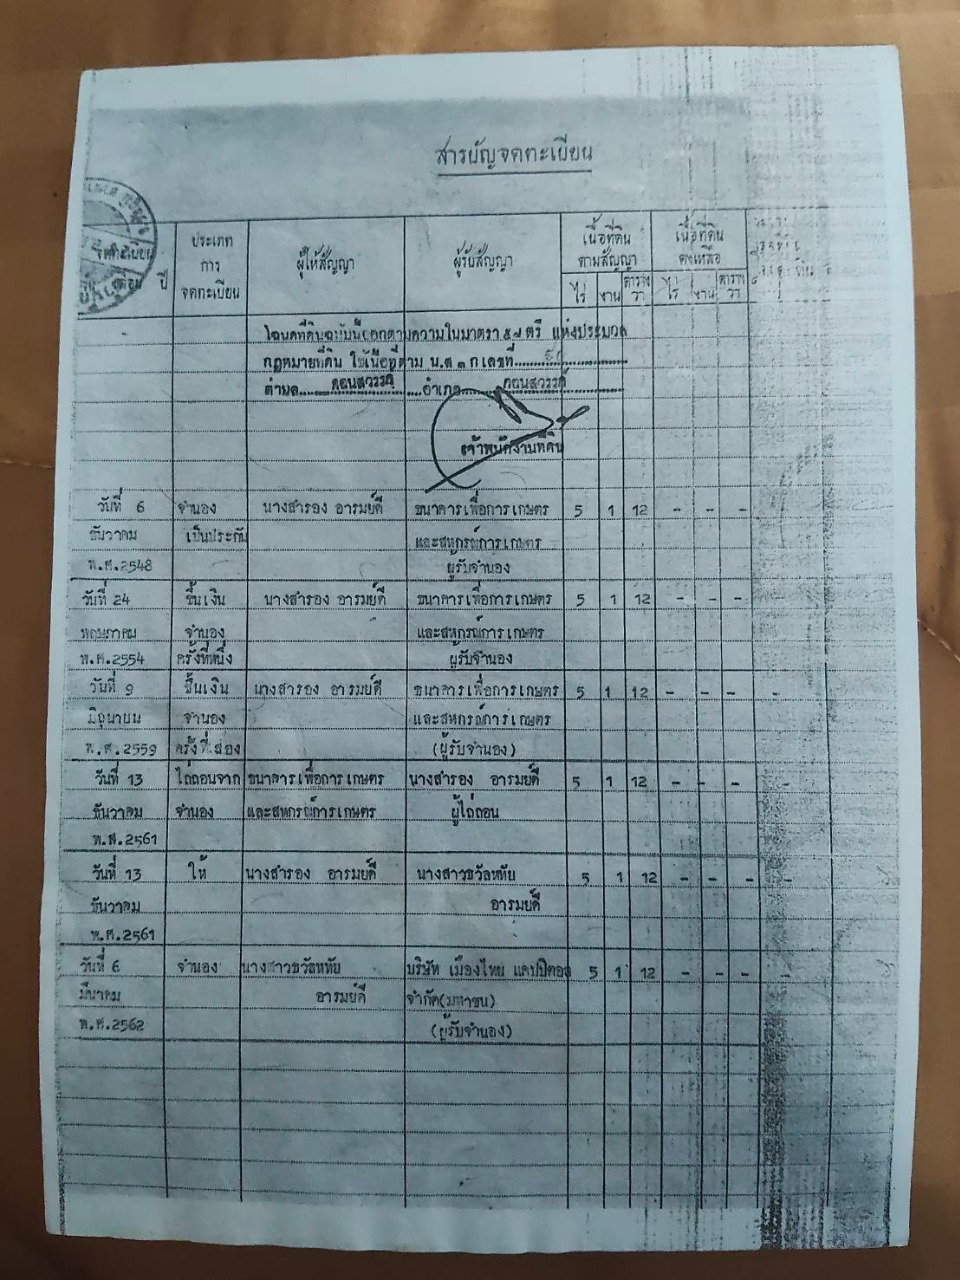 สารบัญจดทะเบียน
จดทะเบียน
เดือน ปี
ประเภท
การ
จดทะเบียน
ผู้ให้สัญญา
ผู้รับสัญญา
เนื้อที่ดิน
ตามสัญญา
ไร่ งาน ตาราง
วา
เนื้อที่ดิน
คงเหลือ
ไร่ งาน ตาราง
วา
โฉนดที่ดินฉบับนี้ออกตามความในมาตรา ๕๘ ตรี แห่งประมวล
กฎหมายที่ดิน ใช้เนื้อที่ตาม น.ส ๓ ก เลขที่
ตำบล คอนสวรรค์ อำเภอ คอนสวรรค์
เจ้าพนักงานที่ดิน
วันที่ 6 จำนอง นางสำรอง อารมย์ดี ธนาคารเพื่อการเกษตร 5 1 12 - - -
ธันวาคม เป็นประกัน และสหกรณ์การเกษตร
พ.ศ.2548 ผู้รับจำนอง
วันที่ 24 ขึ้นเงิน นางสำรอง อารมย์ดี ธนาคารเพื่อการเกษตร 5 1 12 - - -
พฤษภาคม จำนอง และสหกรณ์การเกษตร
พ.ศ.2554 ครั้งที่หนึ่ง ผู้รับจำนอง
วันที่ 9 ขึ้นเงิน นางสำรอง อารมย์ดี ธนาคารเพื่อการเกษตร 5 1 12 - - - -
มิถุนายน จำนอง และสหกรณ์การเกษตร
พ.ศ.2559 ครั้งที่สอง (ผู้รับจำนอง)
วันที่ 13 ไถ่ถอนจาก ธนาคารเพื่อการเกษตร นางสำรอง อารมย์ดี 5 1 12 - - - -
ธันวาคม จำนอง และสหกรณ์การเกษตร ผู้ไถ่ถอน
พ.ศ.2561
วันที่ 13 ให้ นางสำรอง อารมย์ดี นางสาวขวัลหทัย 5 1 12 - - - -
ธันวาคม อารมย์ดี
พ.ศ.2561
วันที่ 6 จำนอง นางสาวขวัลหทัย บริษัท เมืองไทย แคปปิตอล 5 1 12 - - - -
มีนาคม อารมย์ดี จำกัด(มหาชน)
พ.ศ.2562 (ผู้รับจำนอง)